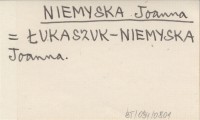 NIEMYSKA Joanna
= ŁUKASZUK-NIEMYSKA
Joanna.